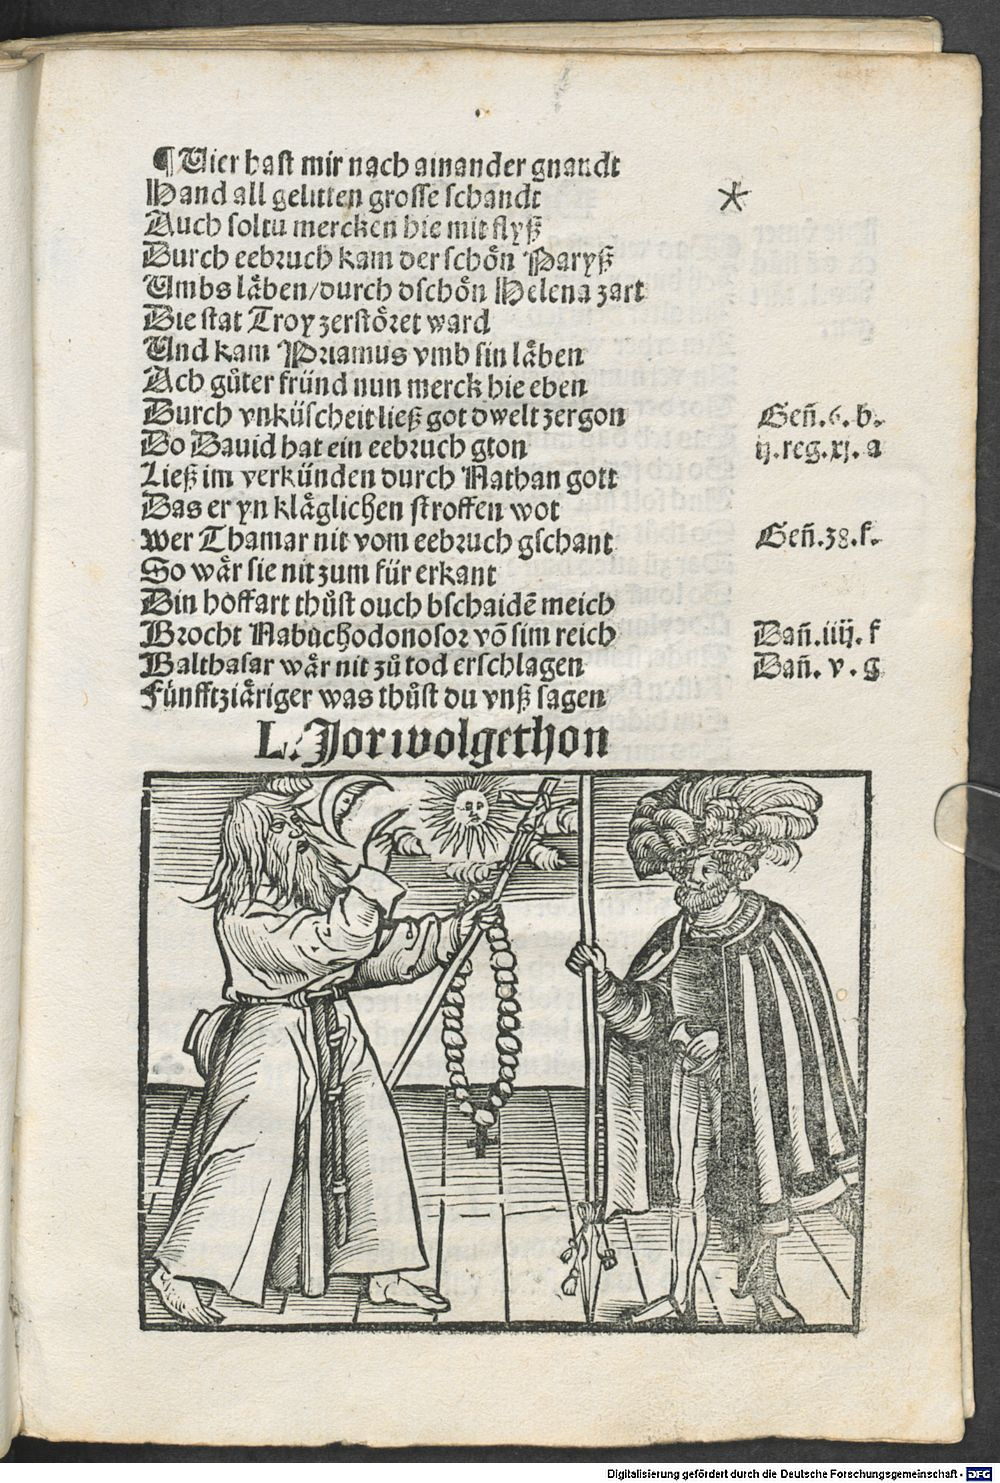 ¶ Vier hast mir nach ainander gnandt
Hand all gelitten grosse schandt
Auch soltu mercken hie mit flyß
Durch eebruch kam der schoͤn Paryß
Umbs laͤben/durch dschoͤn Helena zart
Die stat Troy zerstoͤret ward
Und kam Priamus vmb sin laͤben
Ach guͦter fründ nun merck hie eben
Durch vnküscheit ließ got dwelt zergon Geñ.6.b.
Do Dauid hat ein eebruch gton ij.reg.xj.a
Ließ im verkünden durch Nathan gott
Das er yn klaͤglichen stroffen wot
wer Thamar nit vom eebruch gschant Geñ.38.f.
So waͤr sie nit zum für erkant
Din hoffart thuͦst ouch bschaidē meich
Brocht Nabuchodonosor võ sim reich Dañ.iiij.f
Balthasar waͤr nit zuͦ tod erschlagen Dañ.v.g
Fünfftziaͤriger was thuͦst du vnß sagen
L. Jor wolgethon
Digitalisierung gefördert durch die Deutsche Forschungsgemeinschaft - DFG